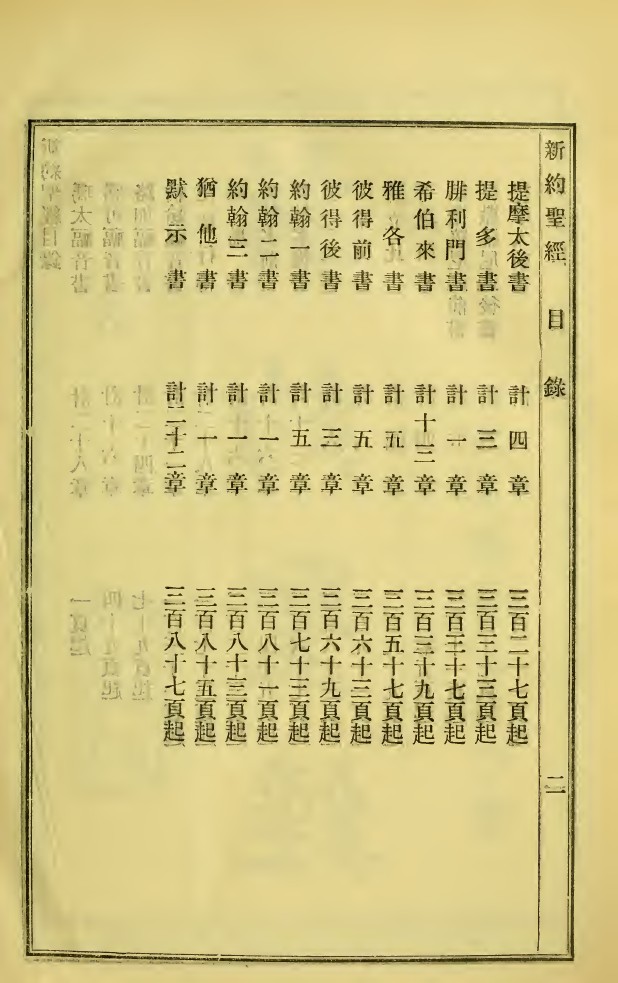 新約聖經 目錄 二
提摩太後書 計四章 三百二十七頁起
提多書 計三章 三百三十三頁起
腓利門書 計一章 三百三十七頁起
希伯來書 計十三章 三百三十九頁起
雅各書 計五章 三百五十七頁起
彼得前書 計五章 三百六十三頁起
彼得後書 計三章 三百六十九頁起
約翰一書 計五章 三百七十三頁起
約翰二書 計一章 三百八十一頁起
約翰三書 計一章 三百八十三頁起
猶他書 計一章 三百八十五頁起
默示書 計二十二章 三百八十七頁起